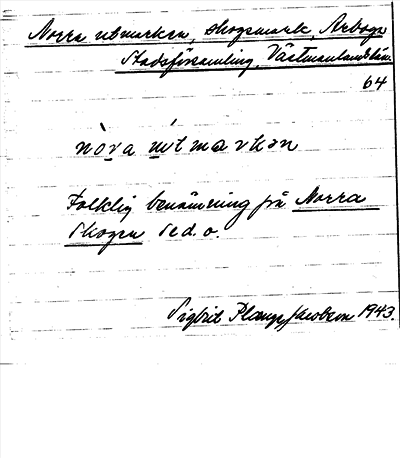 Norra utmarken, skogsmark, Arboga
Stadsförsamling, Västmanlandslän.
64
nòra ùtmarkən
Folklig benämning på Norra
skogen se d. o.
Sigbrit Plænge Jacobson 1943.